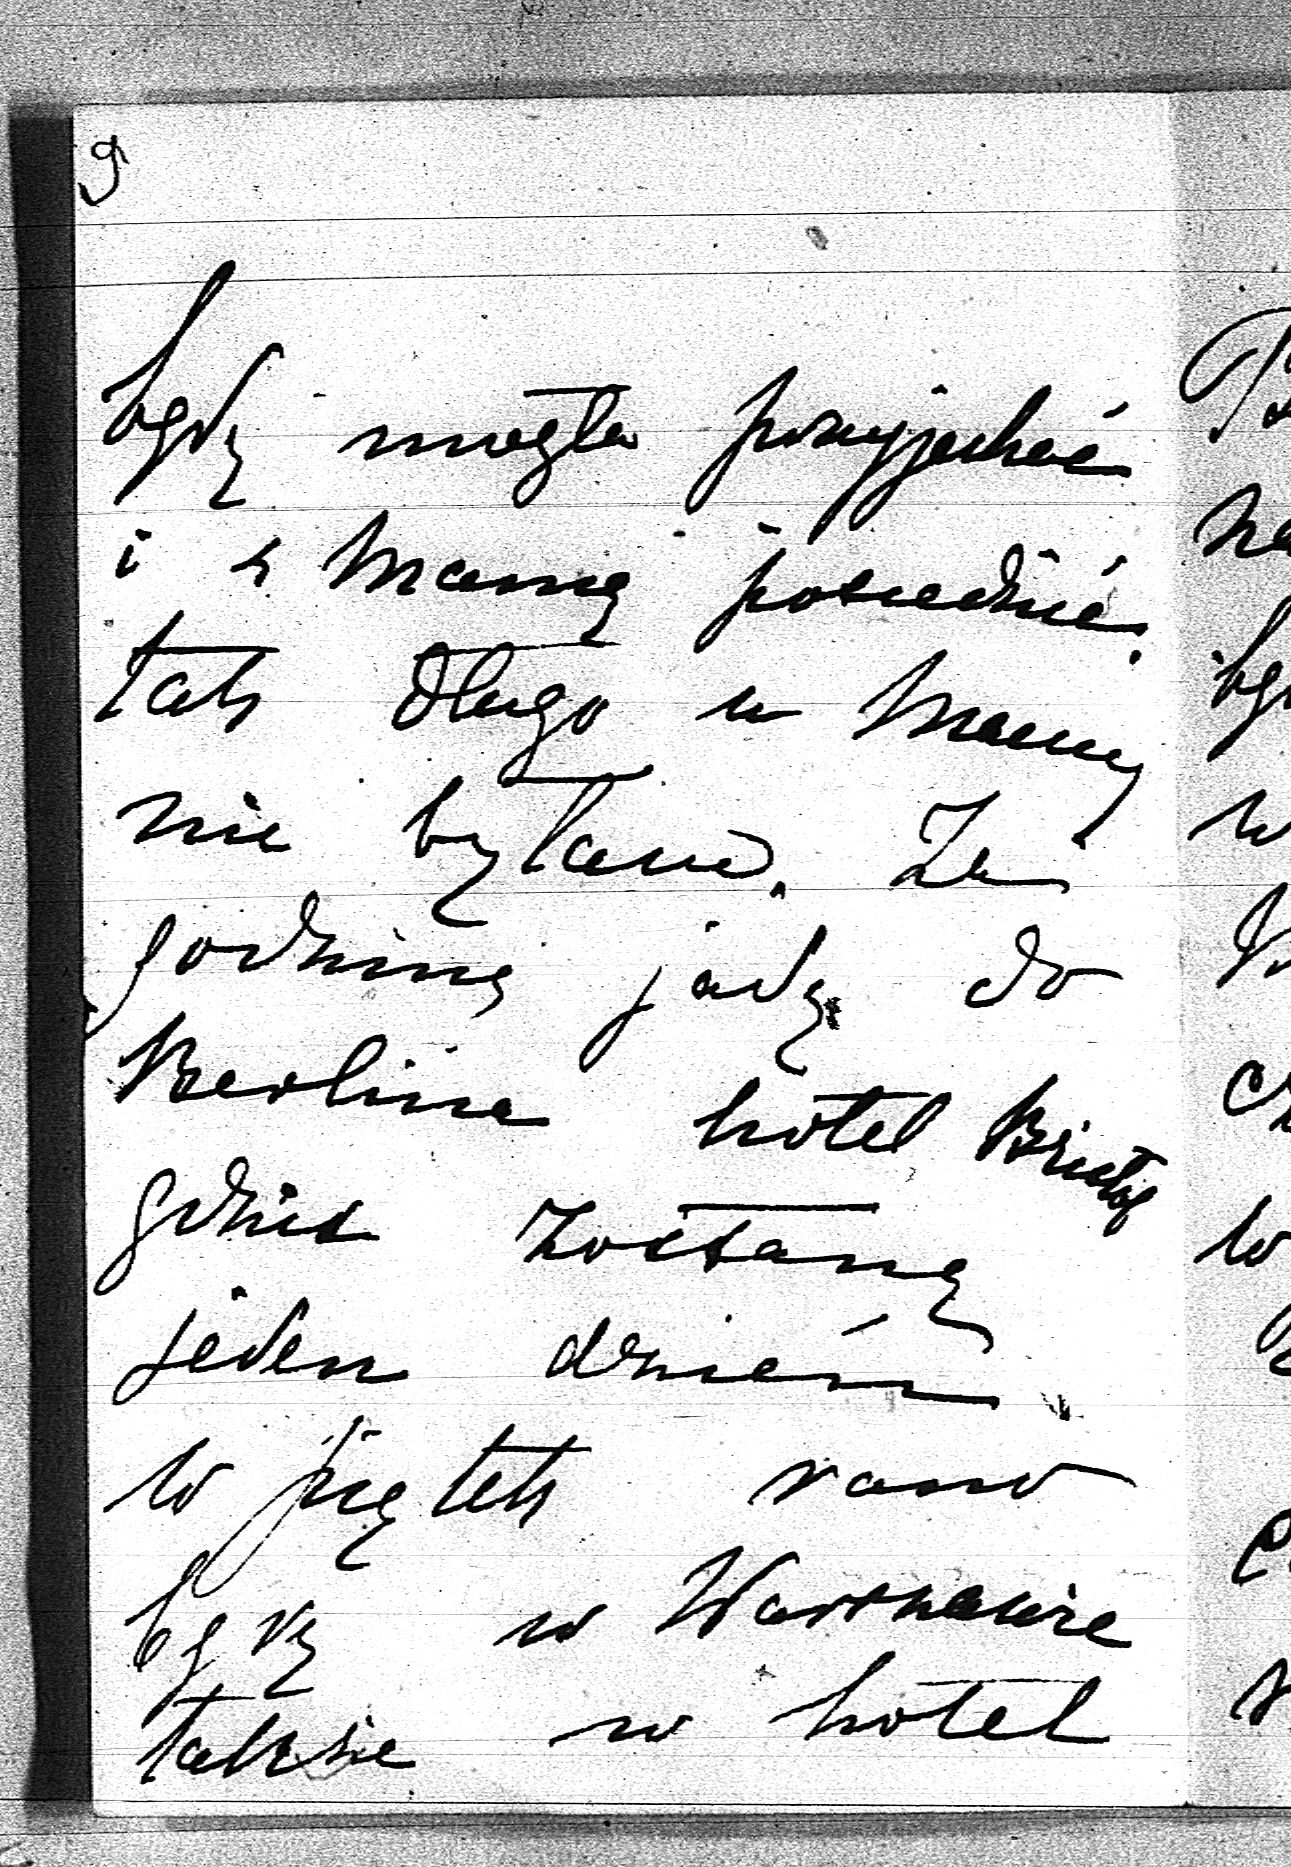 9
będę mogła przyjechać
i z Mamą posiedzieć.
tak długo u Mamy
nie byłam. Za
godzinę jadę do
Berlina hotel Bristol
gdzie zostanę
jeden dzień
w piętek rano
będę w Warszawie
także w hotel